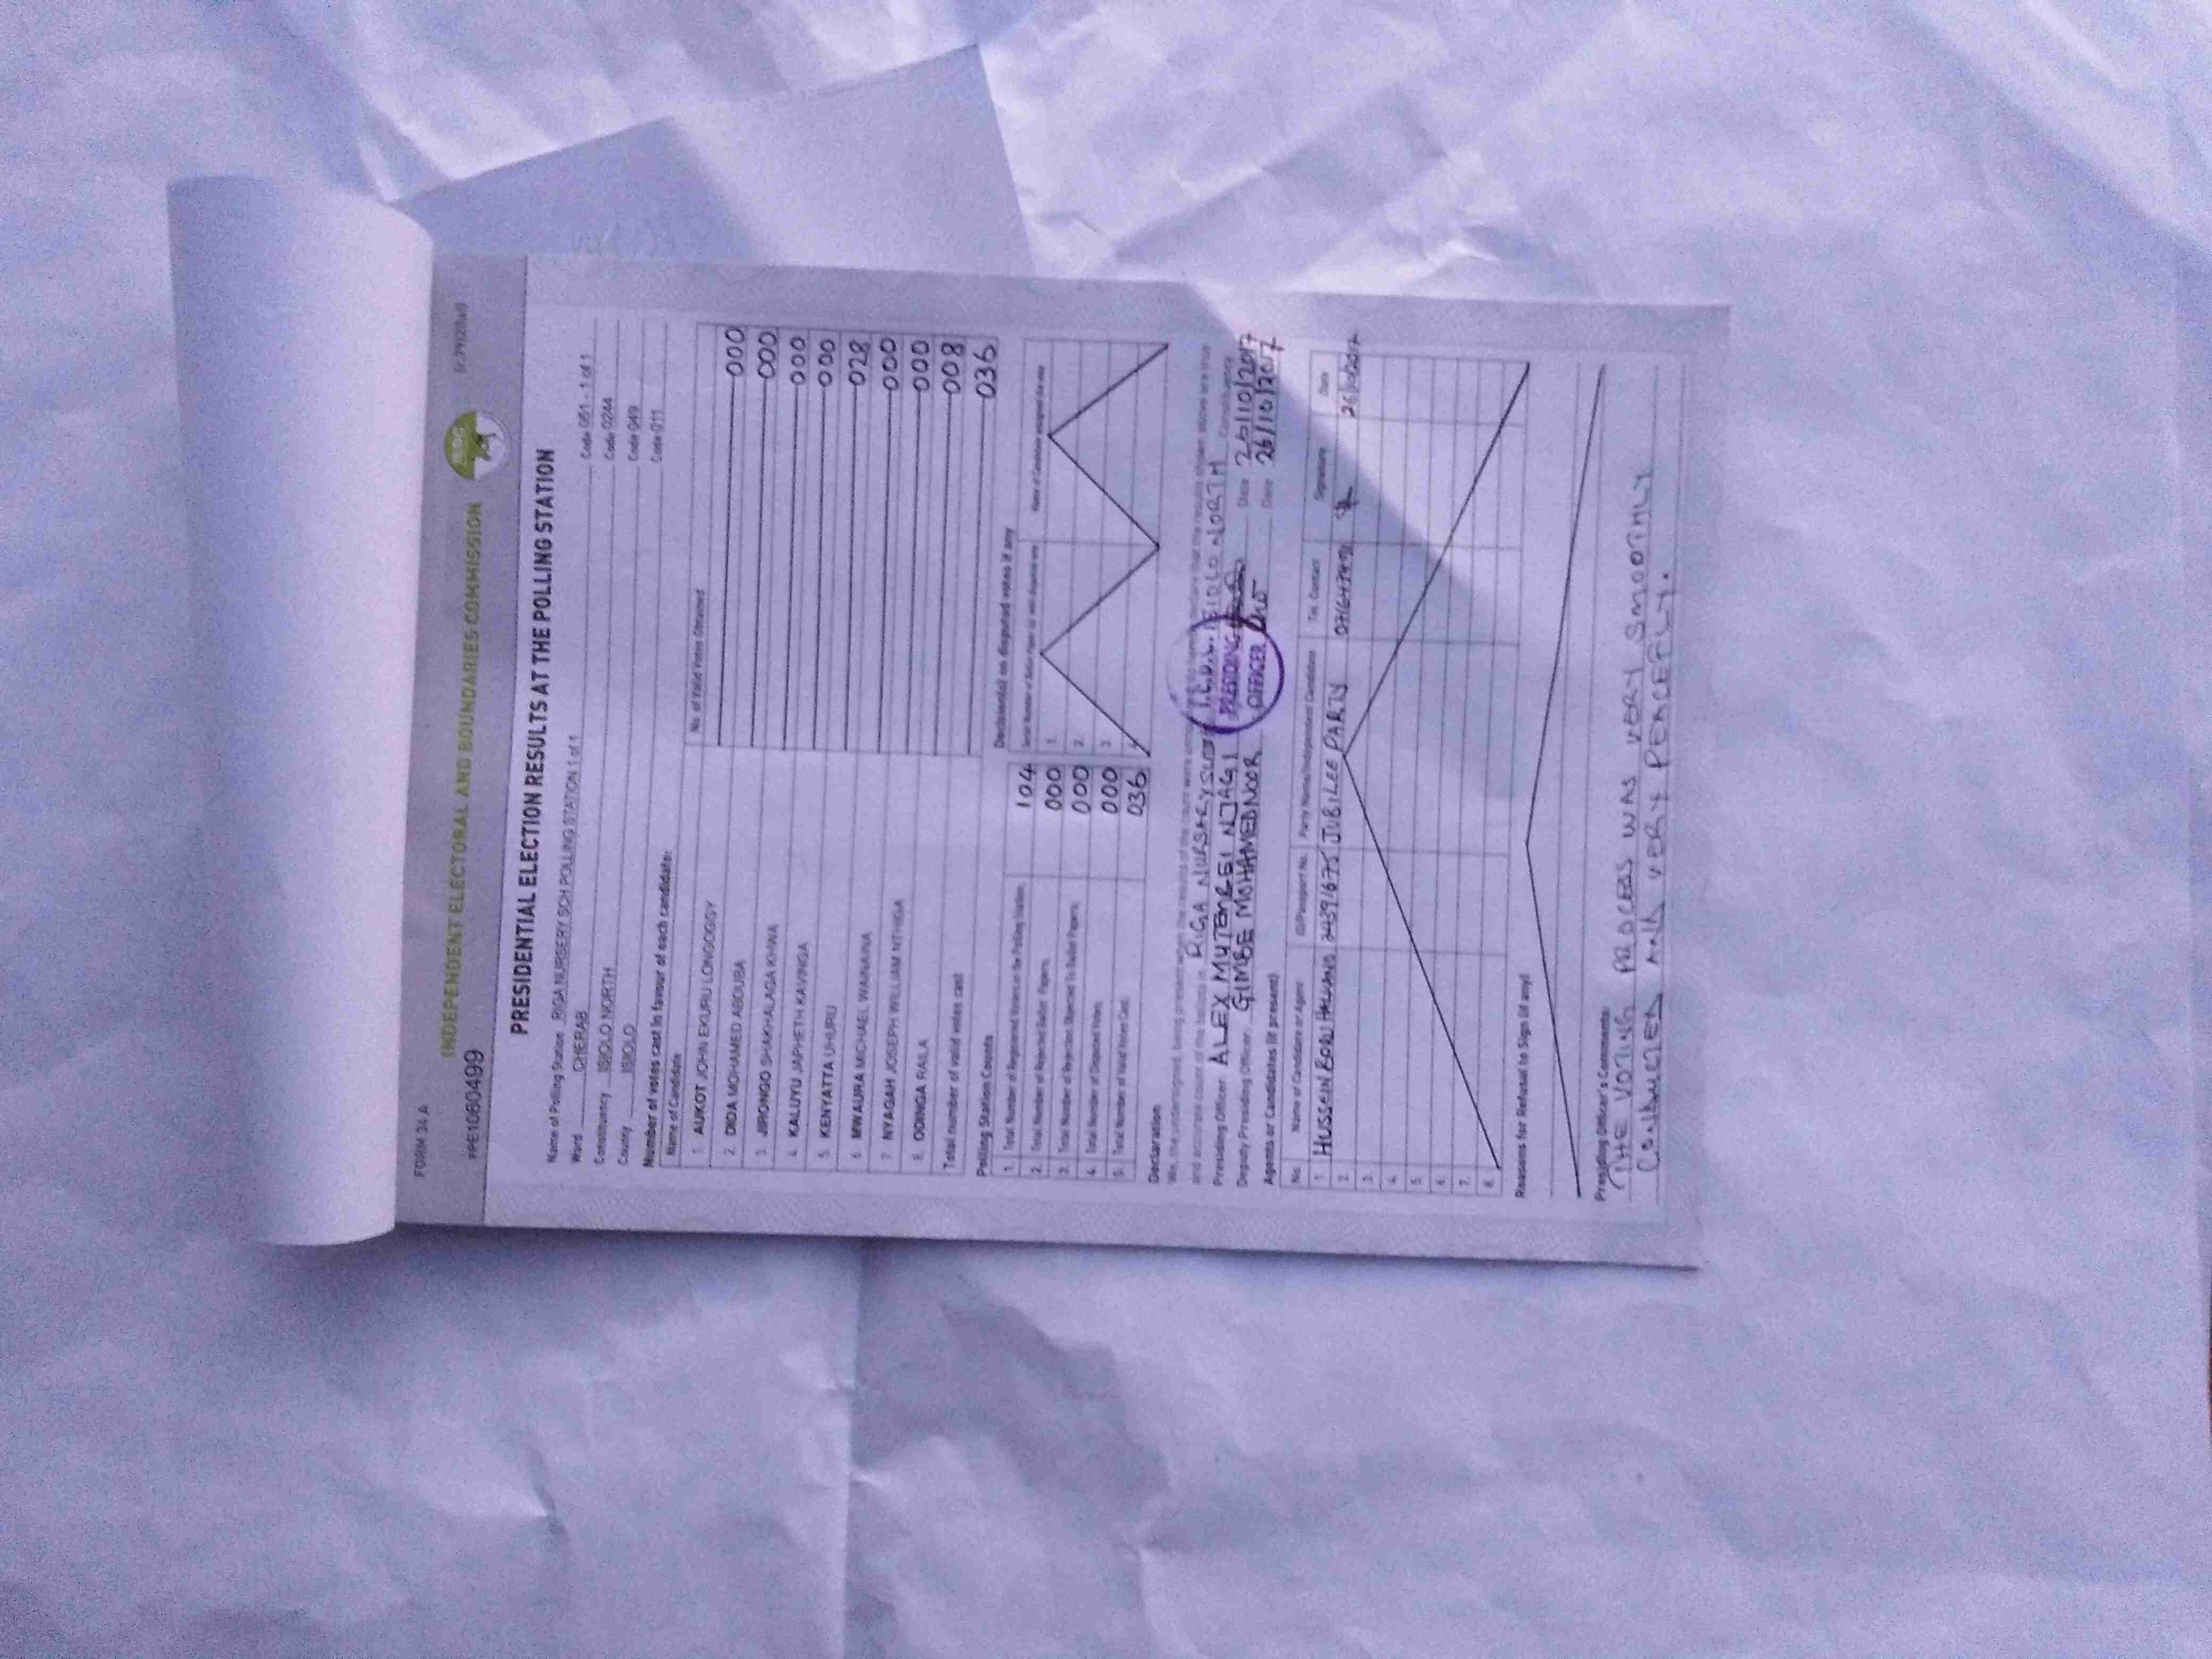 FORM 34 A
INDEPENDENT ELECTORAL AND BOUNDARIES COMMISSION
PPE1060499
PRESIDENTIAL ELECTION RESULTS AT THE POLLING STATION
Name of Polling Station RIGA NURSERY SCH POLLING STATION 1 of 1 Code 051 - 1 of 1
Ward CHERAB Code 0244
Constituency ISIOLO NORTH Code 049
County ISIOLO Code 011
Number of votes cast in favour of each candidate:
Name of Candidate No. of Valid Votes Obtained
1. AUKOT JOHN EKURU LONGOGGY 000
2. DIDA MOHAMED ABDUBA 000
3. JIRONGO SHAKHALAGA KHWA 000
4. KALUYU JAPHETH KAVINGA 000
5. KENYATTA UHURU 028
6. MWAURA MICHAEL WAINAINA 000
7. NYAGAH JOSEPH WILLIAM NTHIGA 000
8. ODINGA RAILA 008
Total number of valid votes cast 036
Polling Station Counts Decision(s) on disputed votes if any
1. Total Number of Registered Voters in the Polling Station 104
2. Total Number of Rejected Ballot Papers 000 1.
3. Total Number of Rejection Objected To Ballot Papers 000 2.
4. Total Number of Disputed Votes 000 3
5. Total Number of Valid Votes Cast 036 4
Declaration
We, the undersigned, being present when the results of the count were
and accurate count of the ballots in RIGA NURSARY ISIOLO NORTH Constituency
Presiding Officer ALEX MUTEMBEI NJAGI PRESIDING OFFICER Date 26/10/2017
Deputy Presiding Officer GIMBE MOHAMEDNOOR Date 26/10/2017
Agents or Candidates (if present)
No. Name of Candidate or Agent ID/Passport No. Party Name/Independent Candidate Tel. Contact Signature Date
1. HUSSEIN BORU 24391675 JUBILEE PARTY 26/10/2017
2.
3.
4.
5.
6.
7.
8.
Reasons for Refusal to Sign (if any)
Presiding Officer's Comments:
THE VOTING PROCESS WAS VERY SMOOTHLY
CONDUCTED AND VERY PEACEFULLY.